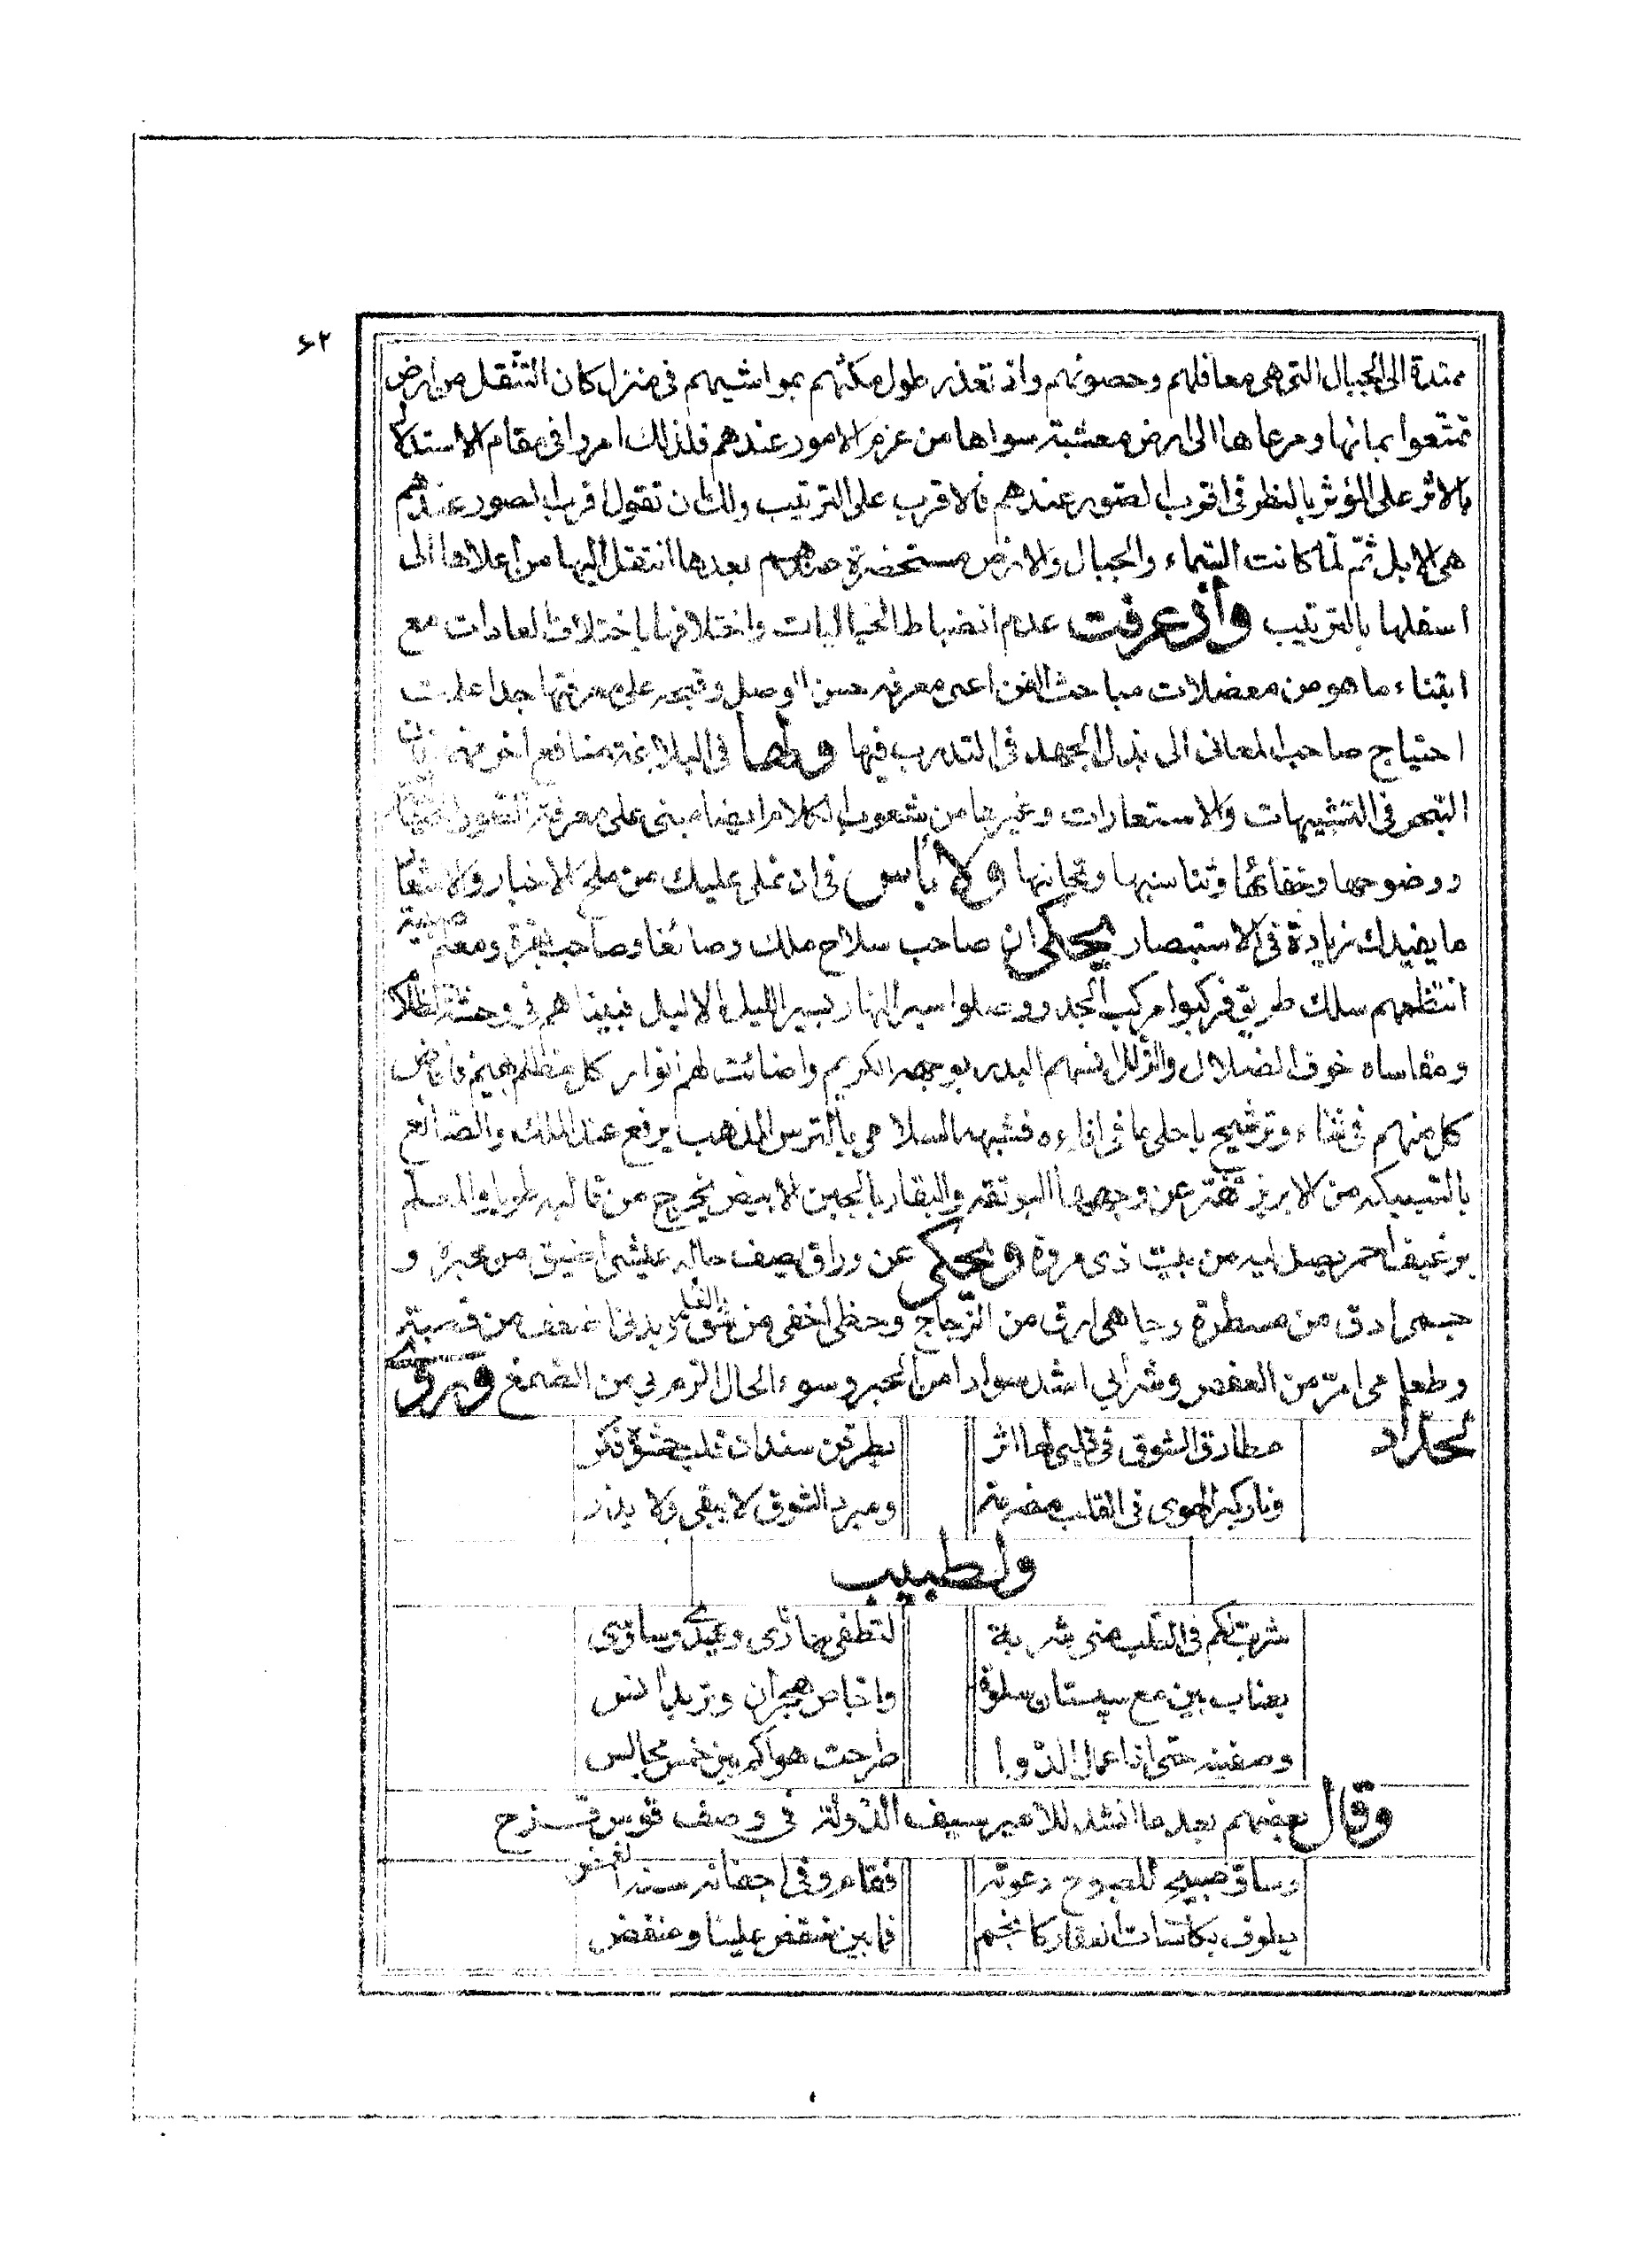 ۶۲
ممتدة الى الجبال التى هى معاقلهم وحصونهم واذ تعذر طول مكثهم بمواشيهم فى منزل كان التنقل من ارض
تمتعوا بمائها ومرعاها الى ارض معشبة سواها من عزم الامور عندهم فلذلك امروا فى مقام الاستدلال
بالاثر على المؤثر بالنظر فى اقرب الصور عندهم فالاقرب على الترتيب ولك ان تقول اقرب الصور عندهم
هى الابل ثم لما كانت السماء والجبال والارض مستحضرة عندهم بعدها انتقل اليها من اعلاها الى
اسفلها بالترتيب واذ عرفت عدم انضباط الخياليات واختلافها باختلاف العادات مع
ابتناء ما هو من معضلات مباحث الفن اعنى معرفة حسن الوصل وقبحه على معرفتها جدا علمت
احتياج صاحب المعانى الى بذل الجهد فى التدرب فيها ولها فى البلاغة منافع اخر منها
التبحر فى التشبيهات والاستعارات وغيرها من شعوب الكلام ايضا مبنى على معرفة الصور
ووضوحها وخفائها وتناسبها وتجانبها ولا بأس فى ان نملى عليك من ملح الاخبار والاشعار
ما يفيدك زيادة فى الاستبصار يحكى ان صاحب سلاح ملك وصائغا وصاحب بقرة ومعلم صبية
انتظمهم سلك طريق فركبوا مركب الجد ووصلوا سير النهار بسير الليل الاليل فبينا هم فى وحشة الظلام
ومقاساة خوف الضلال والزلل انسهم البدر بوجهه الكريم واضائت لهم انوار كل مظلم بهيم فافاض
كل منهم فى ثناء وترشيح باحلى ما فى اناءه فشبهه السلاحى بالترس المذهب يرفع عند الملك والصائغ
بالسبيكة من الابريز تفتر عن وجهها البوتقة والبقار بالجبن الابيض يخرج من قالبه طريا والمعلم
برغيف احمر يصل اليه من بيت ذى مروة ويحكى عن وراق يصف حاله عيشى اضيق من محبرة و
جسمى ادق من مسطرة وجاهى ارق من الزجاج وحظى اخفى من شق القلم وبدنى اضعف من قصبة
وطعامى امر من العفص وشرابى اشد سوادا من الحبر وسوء الحال الزم لى من الصمغ ويروى
لحداد مطارق الشوق فى قلبى لها اثر يطرقن سندان قلب حشوه فكر
ونار كير الهوى فى القلب مضرمة ومبرد الشوق لا يبقى ولا يذر
ولطبيب
شربت لكم فى القلب منى شربة لتطفى بها نارى وعيدى وساوسى
بعناب بين مع سپستان سلوة واجاص هجران وتربد انس
وصفيته حتى اذا عمل الدوا طرحت هواكم بين خمس مجالس
وقال بعضهم بعد ما انشد للامير سيف الدولة فى وصف قوس قزح
وساق صبيح للصبوح دعوته فقام وفى اجفانه سنة الغمض
يطوف بكاسات العقار كانجم فما بين منقض علينا ومنفض